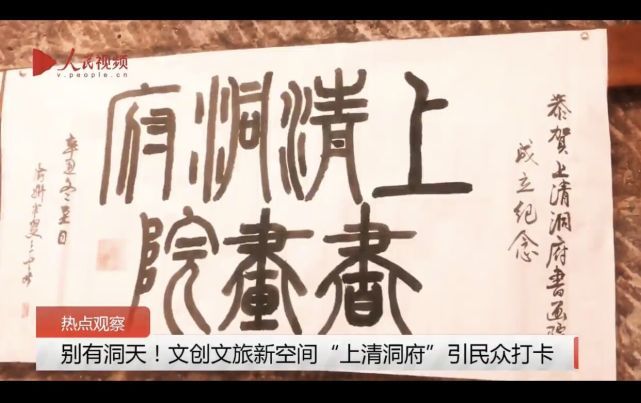 人民视频
v.people.cn
上清洞府
書畫院
恭贺上清洞府书画院
成立纪念
辛丑冬至日
热点观察
别有洞天！文创文旅新空间“上清洞府”引民众打卡